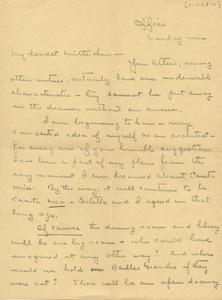 Office
Monday noon
My dearest Mütterchen –
Your letters, among
other notes, certainly have one undeniable
characteristic – they cannot be put away
in the drawer without an answer.
I am beginning to have a very
conceited idea of myself as an architect –
for every one of your humble suggestions
have been a part of my plans from the
very moment I ever dreamed about Casita
mia. By the way, it will continue to
Casita mia – Estella and I agreed on that
long ago.
Of course the dining room and library
will be one big room – who could have
imagined it any other way? And where
would we hold our Balles Grandes if they
were not? There will be an open doorway